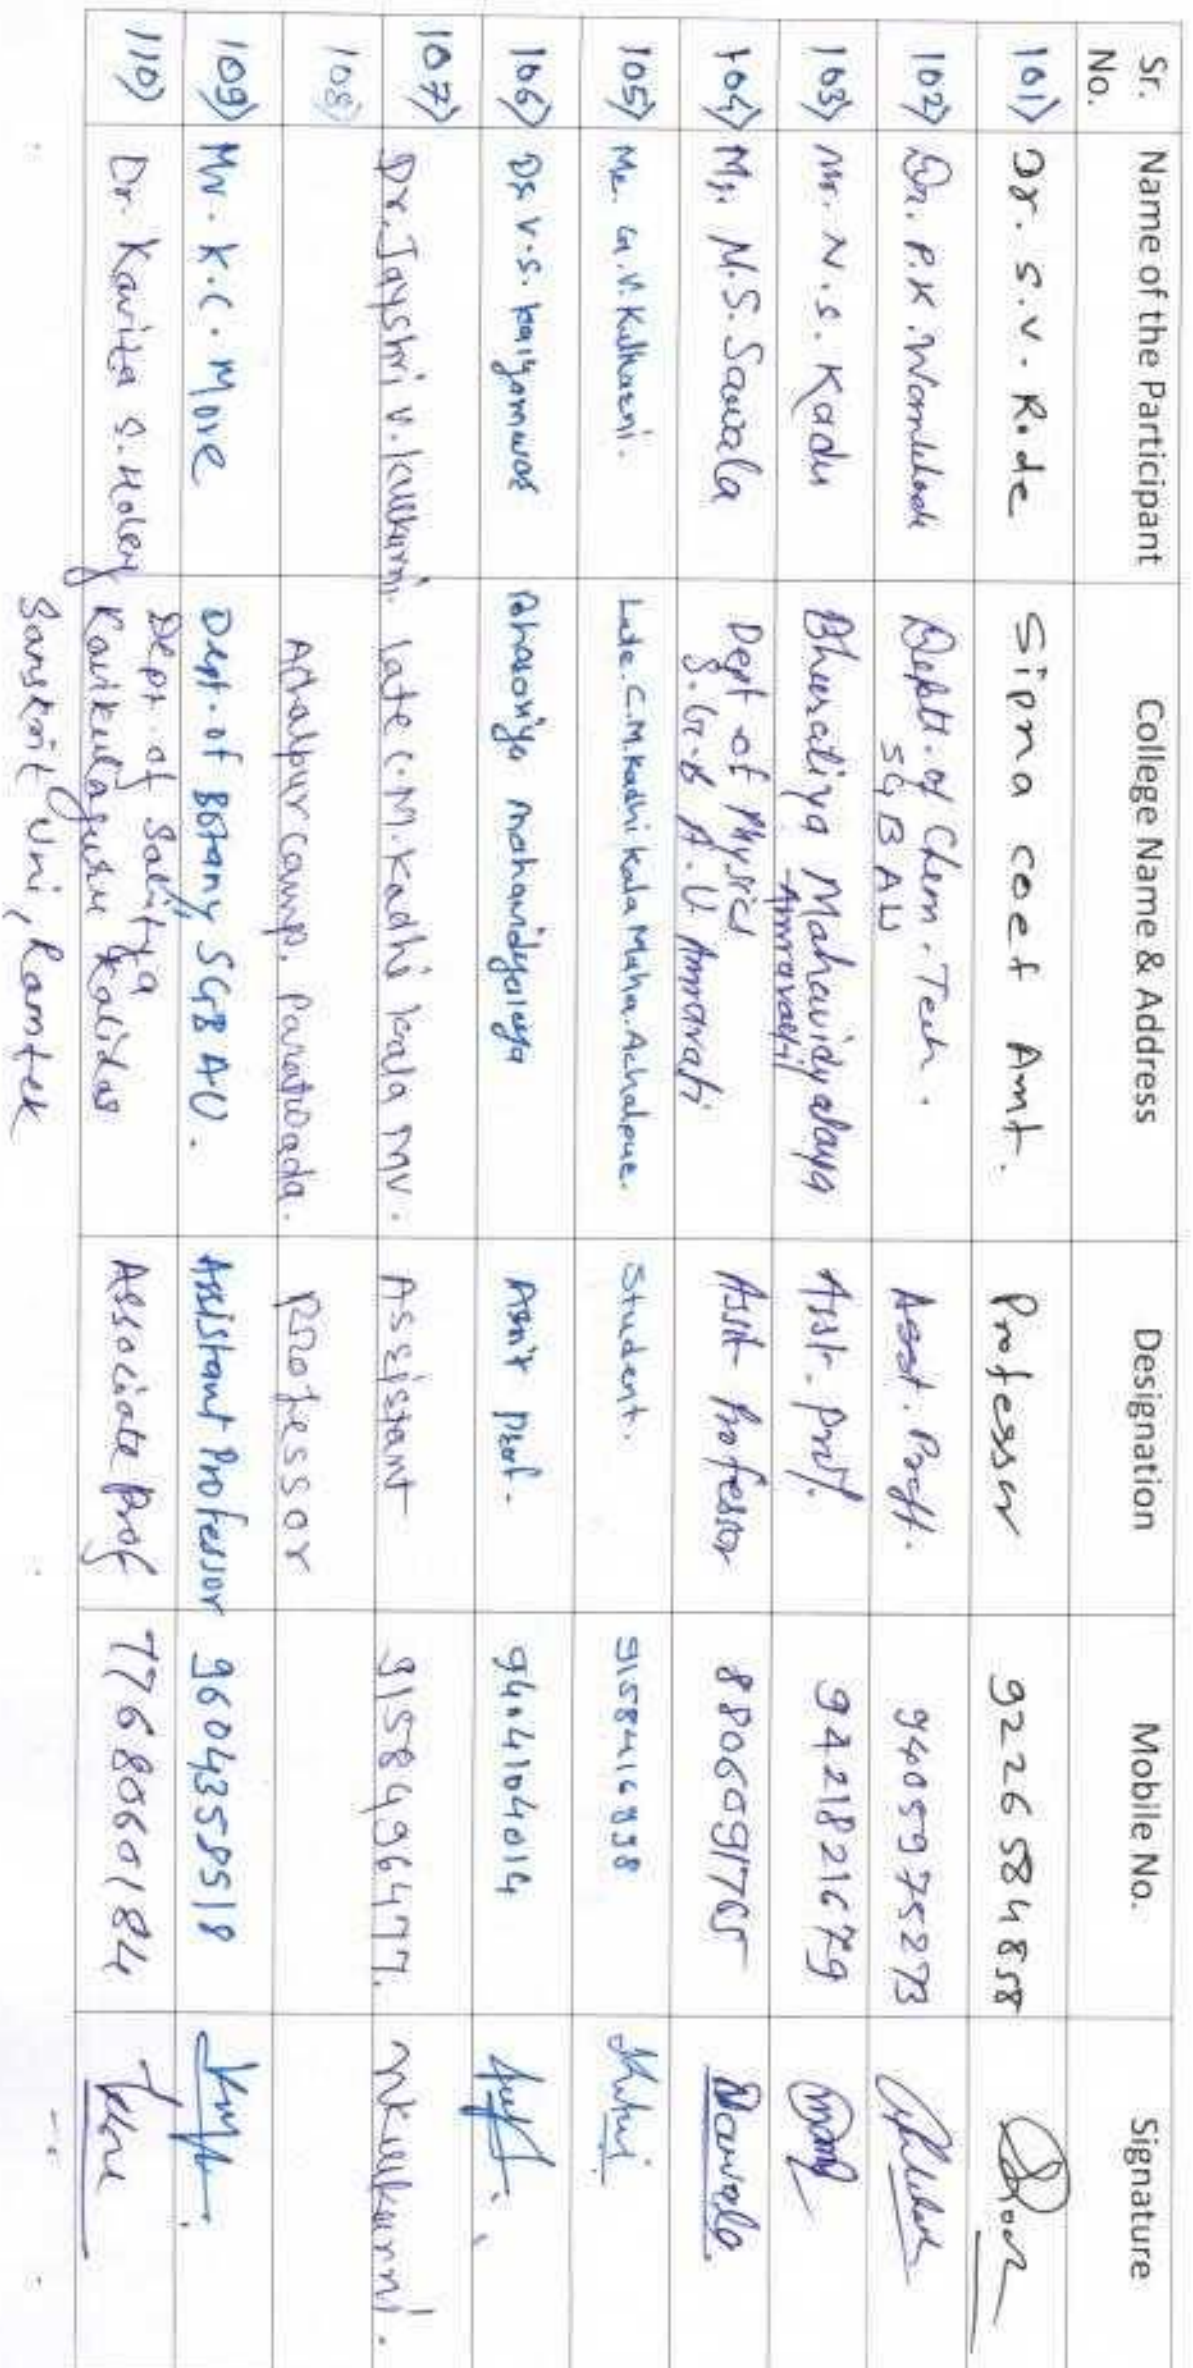 Sr. No. Name of the Participant College Name & Address Designation Mobile No. Signature
101) Dr. S.V. Rode Sipna COET Amt. Professor 9226584858
102) Dr. P.K. Deptt. of Chem. Tech. SGBAU Asst. Proff. 9405975273
103) Mr. N.S. Kadu Bharatiya Mahavidyalaya Amravati Asst. Prof. 9421821679
104) Mr. M.S. Sawala Dept of Physics S.G.B A.U. Amravati Asst Professor 8806091765
105) Mr. G.V. Kulkarni. Late. C.M. Kadhi Kala Maha. Achalpur. Student. 9158416998
106) Dr. V.S. Mahavidyalaya Assi't Prof. 9404104014
107) Dr. Jayshri V. Kulkarni. late C.M. Kadhi kala MV. Assistant 9158996477. Nkulkarni.
108) Achalpur camp. Paratwada. Professor
109) Mr. K.C. More Dept. of Botany, SGBAU. Assistant Professor 9604358518
110) Dr. Kavita S. Holey Dept. of Sahitya Kavikulaguru Kalidas Sanskrit Uni, Ramtek Associate Prof 7768060184